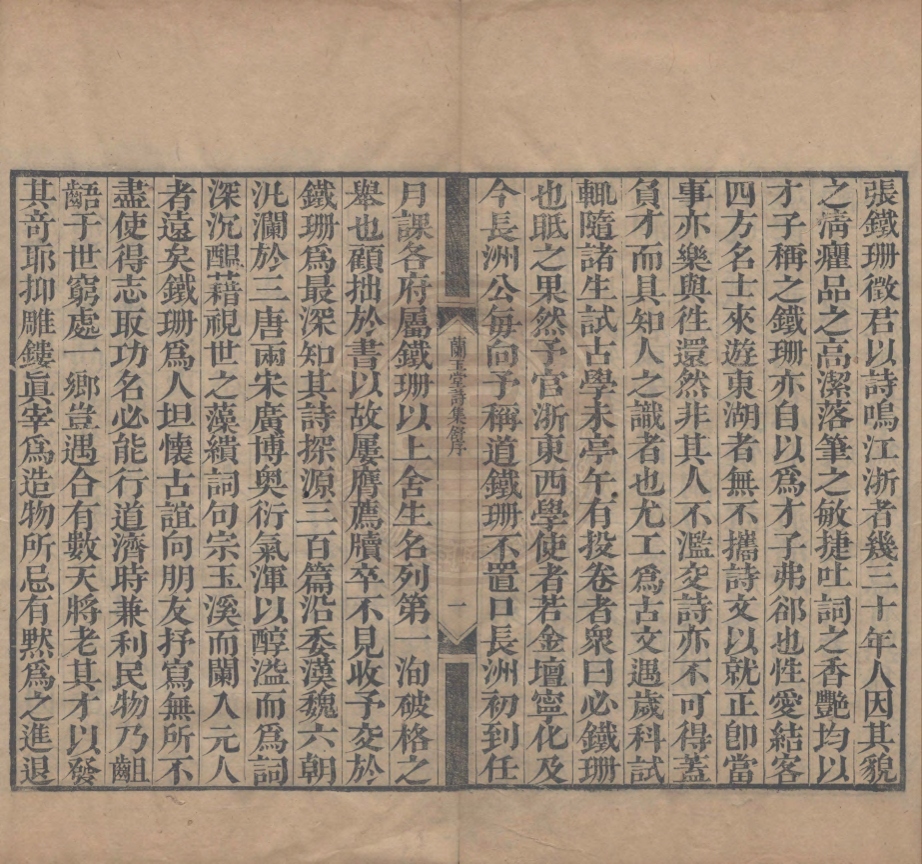 張鐵珊徵君以詩鳴江浙者幾三十年人因其貌
之清癯品之高潔落筆之敏捷吐詞之香艷均以
才子稱之鐵珊亦自以爲才子弗郤也性愛結客
四方名士來遊東湖者無不攜詩文以就正卽當
事亦樂與徃還然非其人不濫交詩亦不可得蓋
負才而具知人之識者也尤工爲古文遇歲科試
輒隨諸生試古學未亭午有投卷者衆曰必鐵珊
也眡之果然予官浙東西學使者若金壇寧化及
今長洲公每向予稱道鐵珊不置口長洲初到任
蘭玉堂詩集舊序
一
月課各府屬鐵珊以上舍生名列第一洵破格之
舉也顧拙於書以故屢膺薦牘卒不見收予交於
鐵珊爲最深知其詩探源三百篇沿委漢魏六朝
汎瀾於三唐兩宋廣博奥衍氣渾以醇溢而爲詞
深沉醖藉視世之藻繢詞句宗玉溪而闌入元人
者遠矣鐵珊爲人坦懷古誼向朋友抒寫無所不
盡使得志取功名必能行道濟時兼利民物乃齟
齬于世窮處一鄉豈遇合有數天將老其才以發
其竒耶抑雕鏤眞宰爲造物所忌有默爲之進退